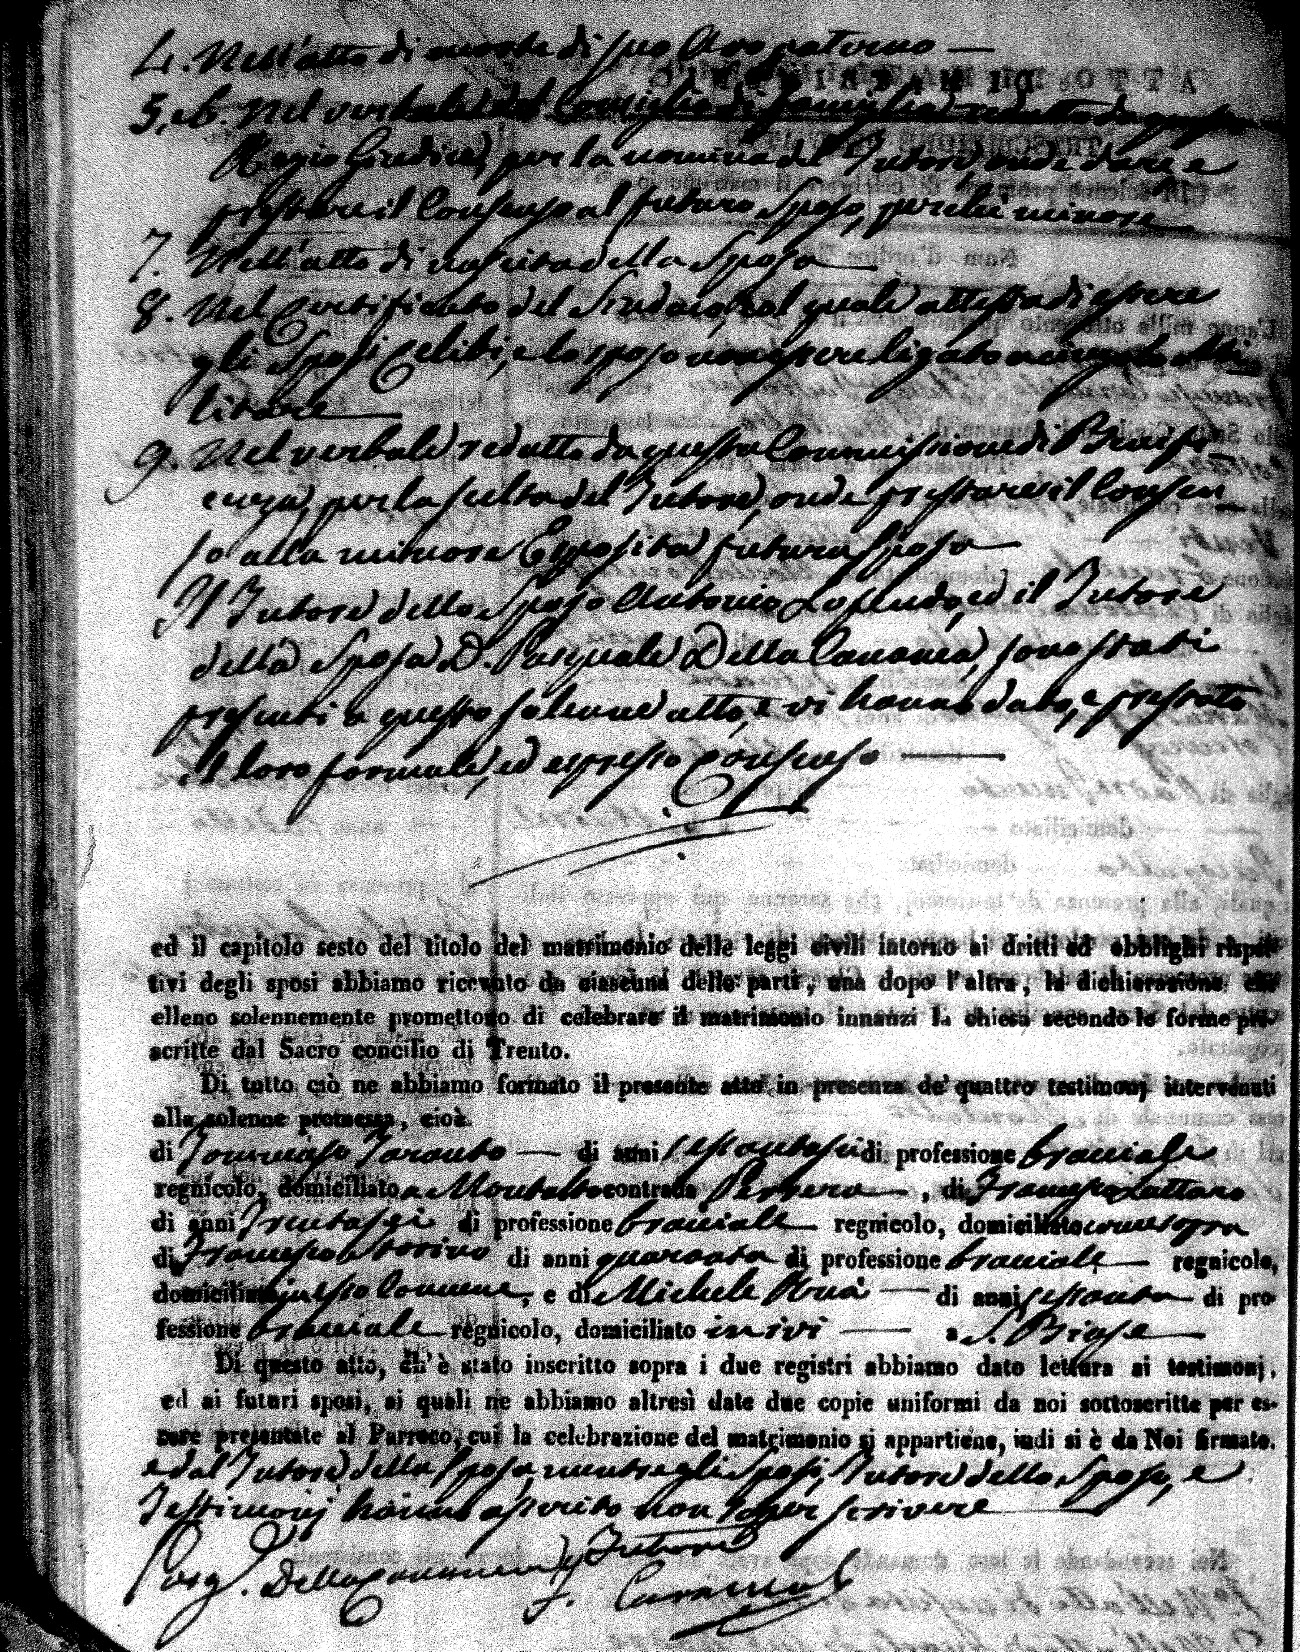 4. Nell'atto di morte di suo Avo paterno —
5, e 6. Nel verbale del Consiglio di famiglia redatto da questo
Regio Giudice, per la nomina del Tutore, onde dare e
prestare il Consenso al futuro Sposo, perché minore
7. Nell'atto di nascita della Sposa —
8. Nel Certificato del Sindaco, dal quale attesta di essere
gli Sposi Celibi, e lo sposo non essere ligato a vincolo mi-
litare —
9. Nel verbale redatto da questa Commissione di Benefi-
cenza, per la scelta del Tutore, onde prestare il Consen-
so alla minore Esposita futura Sposa —
Il Tutore dello Sposo Antonio Lofeudo, ed il Tutore
della Sposa D. Pasquale Della Cananea, sono stati
presenti a questo solenne atto, e vi hanno dato, e prestato
il loro formale, ed espresso Consenso —
ed il capitolo sesto del titolo del matrimonio delle leggi civili intorno ai dritti ed obblighi rispet-
tivi degli sposi abbiamo ricevuto da ciascuna delle parti, una dopo l'altra, la dichiarazione che
elleno solennemente promettono di celebrare il matrimonio innanzi la chiesa secondo le forme pre-
scritte dal Sacro concilio di Trento.
Di tutto ciò ne abbiamo formato il presente atto in presenza de' quattro testimonj intervenuti
alla solenne promessa, cioè.
di Tommaso Taranto — di anni sessantasei di professione bracciale
regnicolo, domiciliato a Montalto contrada , di Francesco Lattaro
di anni Trentasei di professione bracciale — regnicolo, domiciliato come sopra
di Francesco Storino di anni quaranta di professione bracciale — regnicolo,
domiciliato in questo Comune, e di Michele — di anni sessanta — di pro-
fessione bracciale — regnicolo, domiciliato in ivi — a S. Biase —
Di questo atto, ch'è stato inscritto sopra i due registri abbiamo dato lettura ai testimonj,
ed ai futuri sposi, ai quali ne abbiamo altresì date due copie uniformi da noi sottoscritte per es-
sere presentate al Parroco, cui la celebrazione del matrimonio si appartiene, indi si è da Noi firmato.
e dal Tutore della Sposa, mentre gli Sposi, Tutore dello Sposo, e
Testimonj hanno asserito non saper scrivere —
Pasq. Della Cananea Tutore
F.